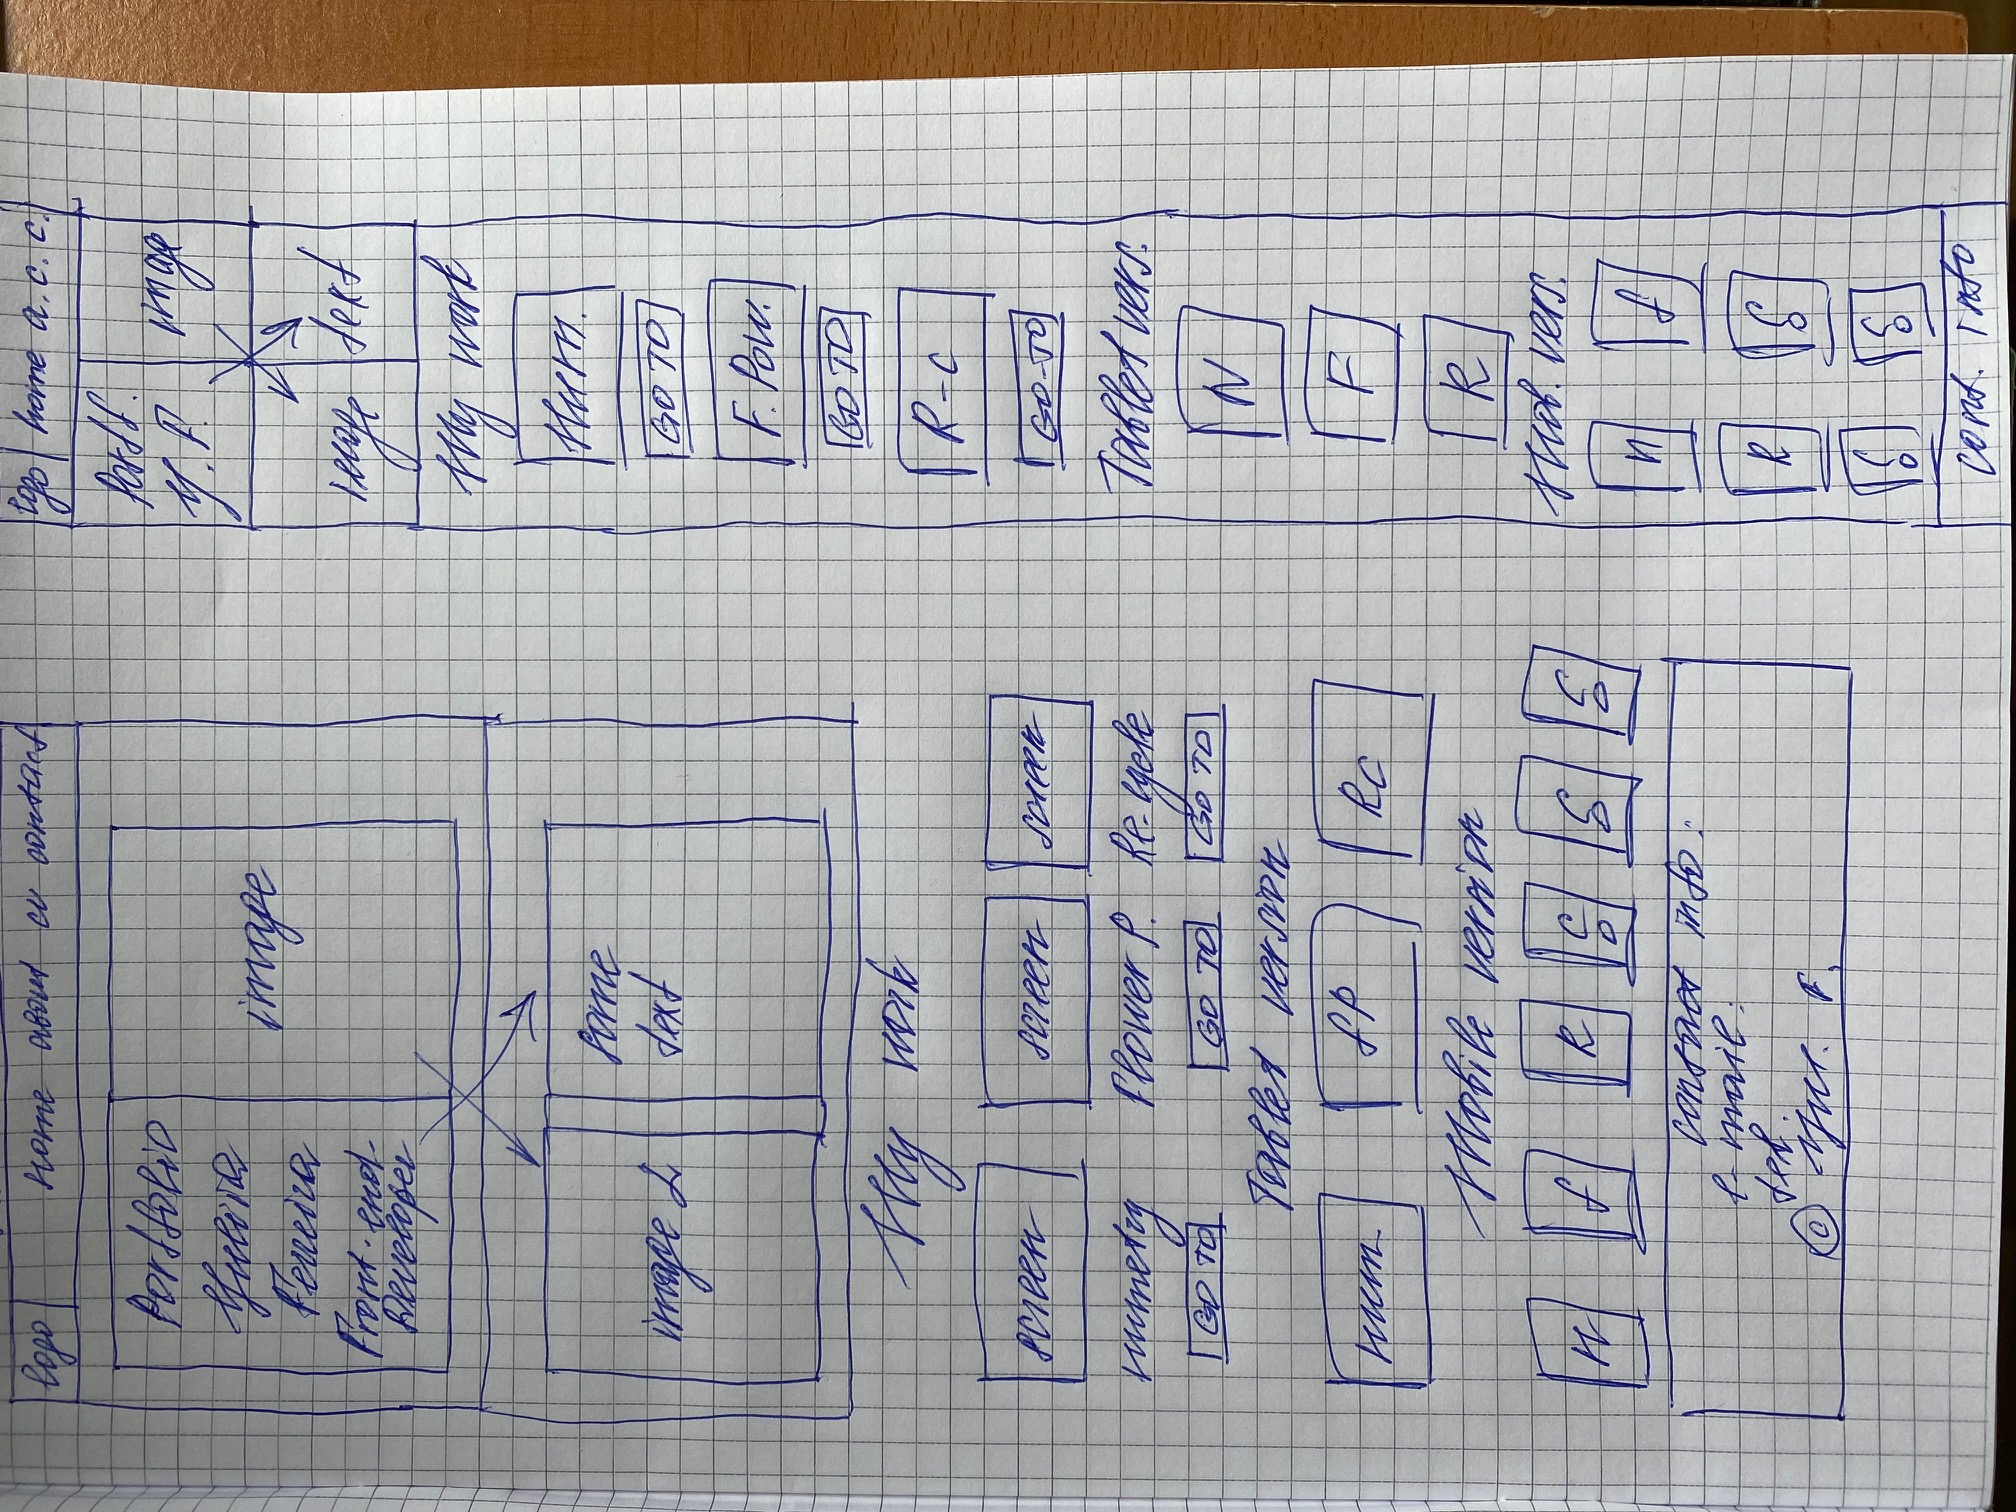 logo home about cv contact
Portfolio
Yuliia
Ferreira
Front-end-
Developer
image
image 2
some
text
My work
screen screen screen
numetry Flower P. Re-cycle
GO TO GO TO GO TO
Tablet version
num fP Rc
Mobile version
N f R
contact info:
e-mail:
tel.
© Yul. F.
logo home a. c. c.
Portf.
Y. F.
image
image text
My work
Num.
GO TO
F. Pow.
GO TO
R-c
GO-TO
Tablet vers.
N
F
R
Mob. vers.
n f
R
cont. info